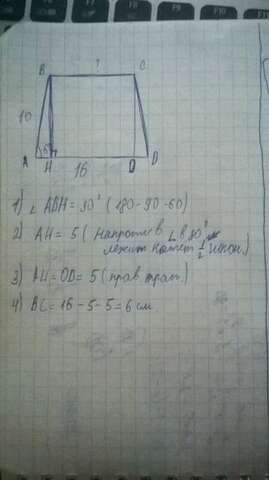 F6 F7 F8 F9 F10
B ? C
10
60
A H O D
16
1) ∠ ABH = 30° (180-90-60)
2) AH = 5 (напротив ∠ в 30°
лежит катет 1/2 гипот.)
3) AH = OD = 5 (прав. трап.)
4) BC = 16 - 5 - 5 = 6 см